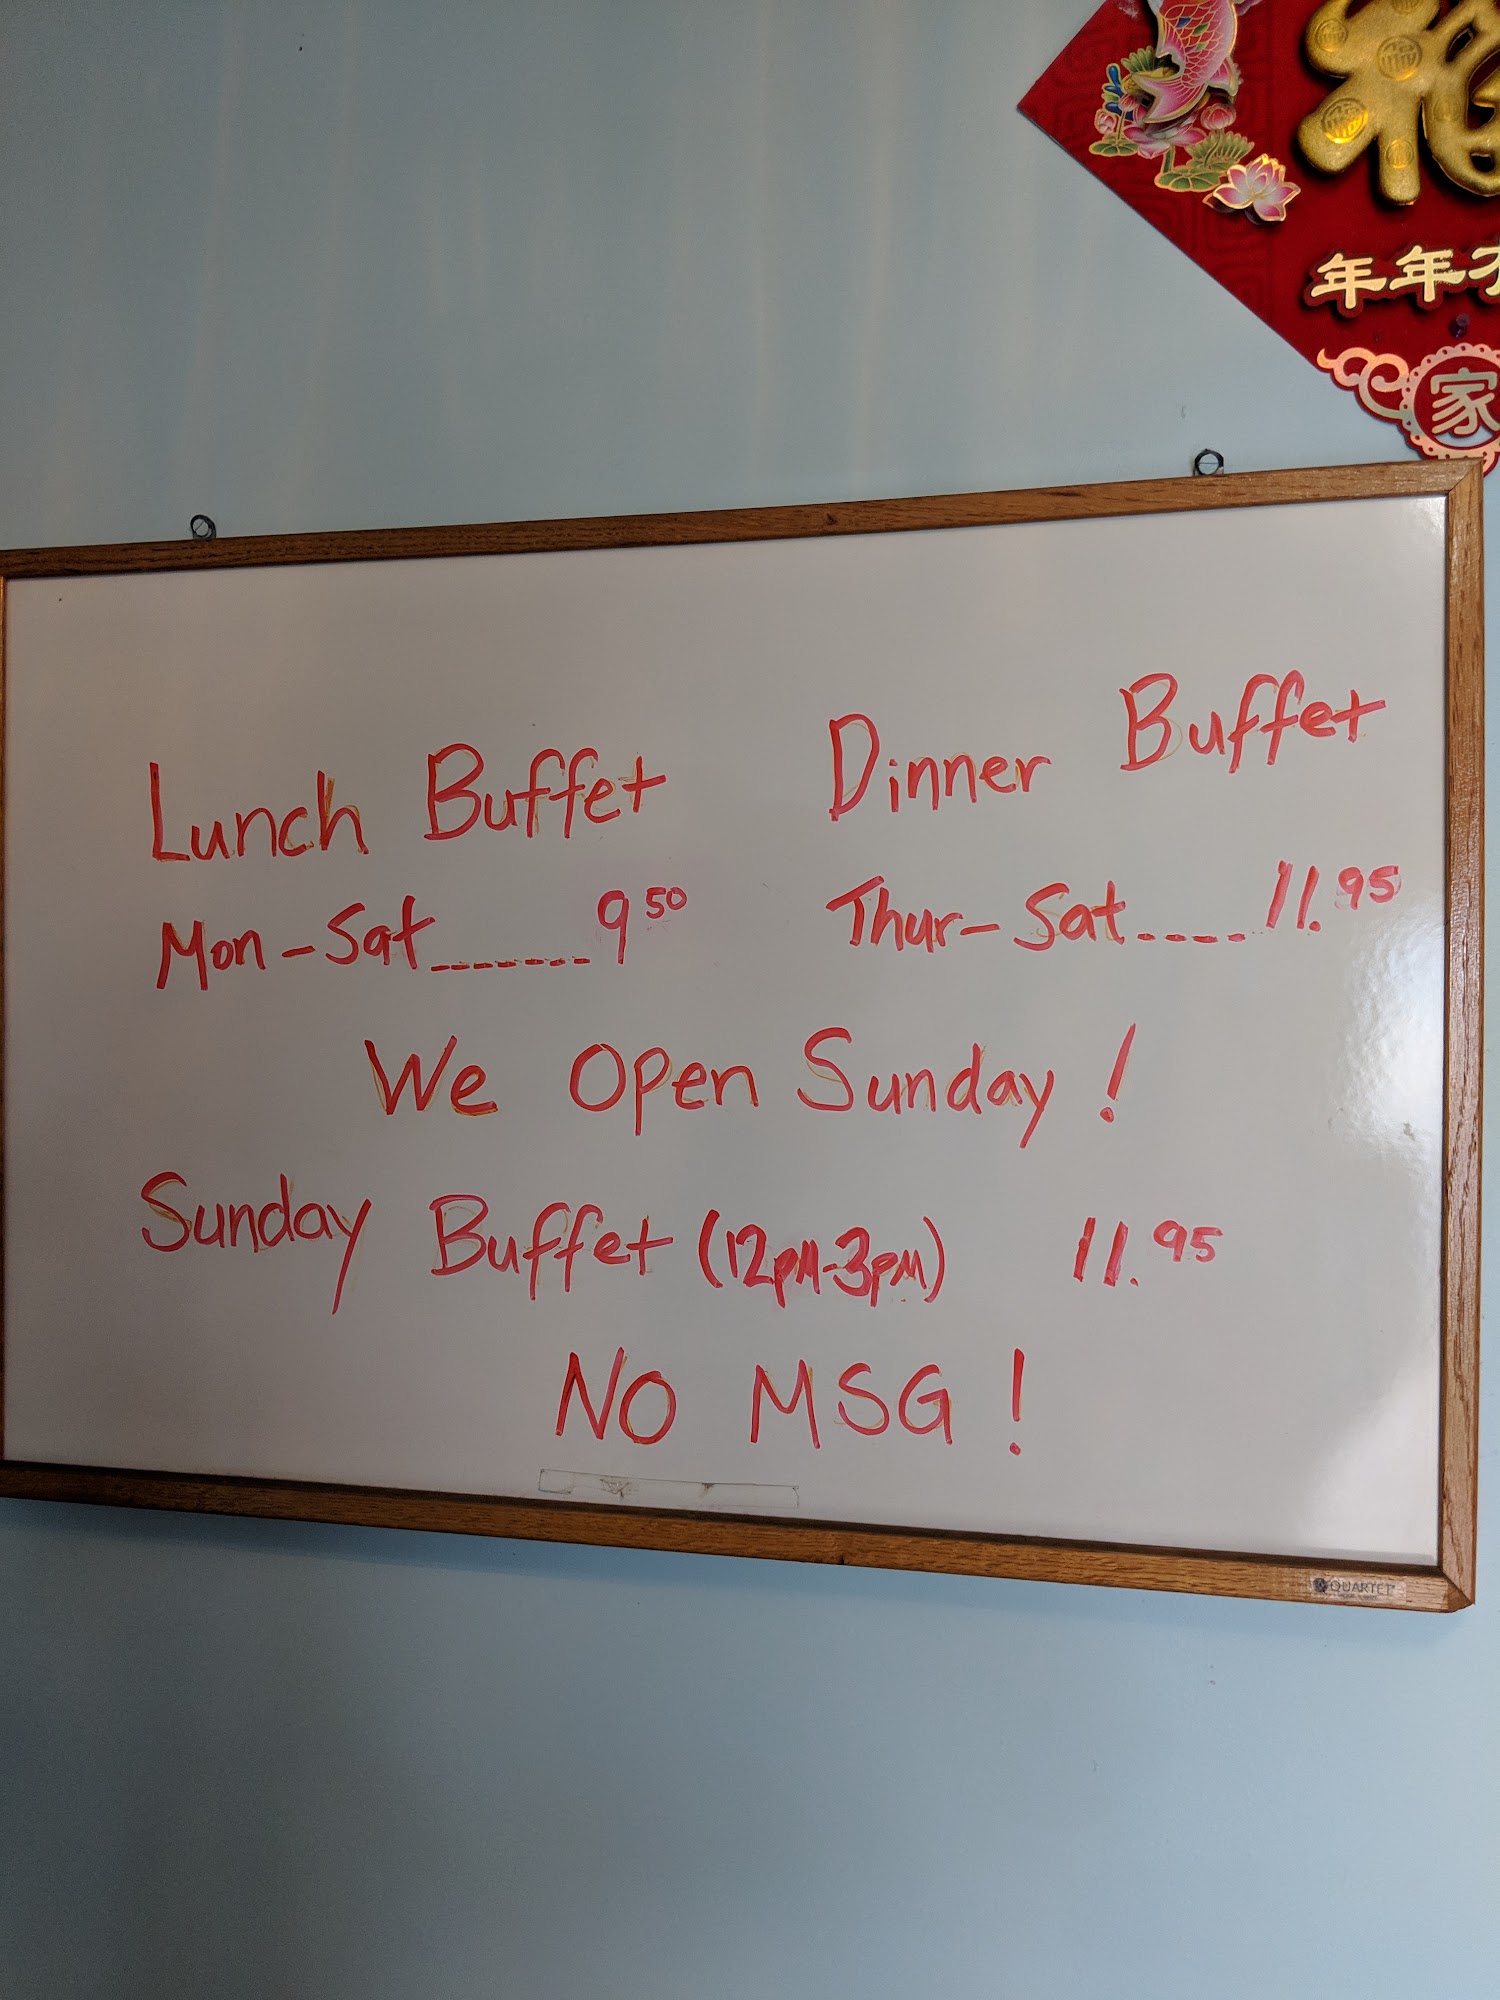 福
年年
家
Lunch Buffet
Dinner Buffet
Mon-Sat.......9 50
Thur-Sat....11.95
We Open Sunday!
Sunday Buffet (12PM-3PM) 11.95
NO MSG!
QUARTET